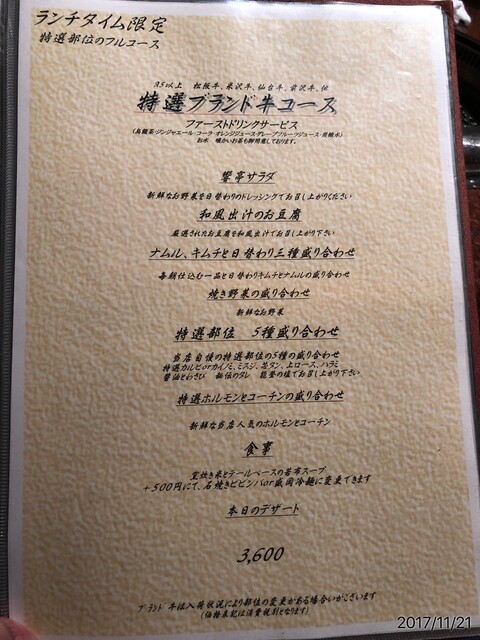 ランチタイム限定
特選部位のフルコース
A5以上 松阪牛、米沢牛、仙台牛、前沢牛、他
特選ブランド牛コース
ファーストドリンクサービス
(烏龍茶・ジンジャエール・コーラ・オレンジジュース・グレープフルーツジュース・炭酸水)
お水 暖かいお茶も御用意しております。
響亭サラダ
新鮮なお野菜を日替わりのドレッシングでお召し上がりください
和風出汁のお豆腐
厳選されたお豆腐を和風出汁でお召し上がり下さい
ナムル、キムチと日替わり三種盛り合わせ
毎朝仕込む一品と日替わりキムチとナムルの盛り合わせ
焼き野菜の盛り合わせ
新鮮なお野菜
特選部位 5種盛り合わせ
当店自慢の特選部位の5種の盛り合わせ
特選カルビorカイノミ、ミスジ、芯タン、上ロース、ハラミ
醤油とわさび 秘伝のタレ 能登の塩でお召し上がり下さい
特選ホルモンとコーチンの盛り合わせ
新鮮な当店人気のホルモンとコーチン
食事
釜炊き米とテールベースの若布スープ
+500円にて、石焼きビビンバor盛岡冷麺に変更できます
本日のデザート
3,600
ブランド牛は入荷状況により部位の変更がある場合がございます
(価格表記は消費税別となります)
2017/11/21